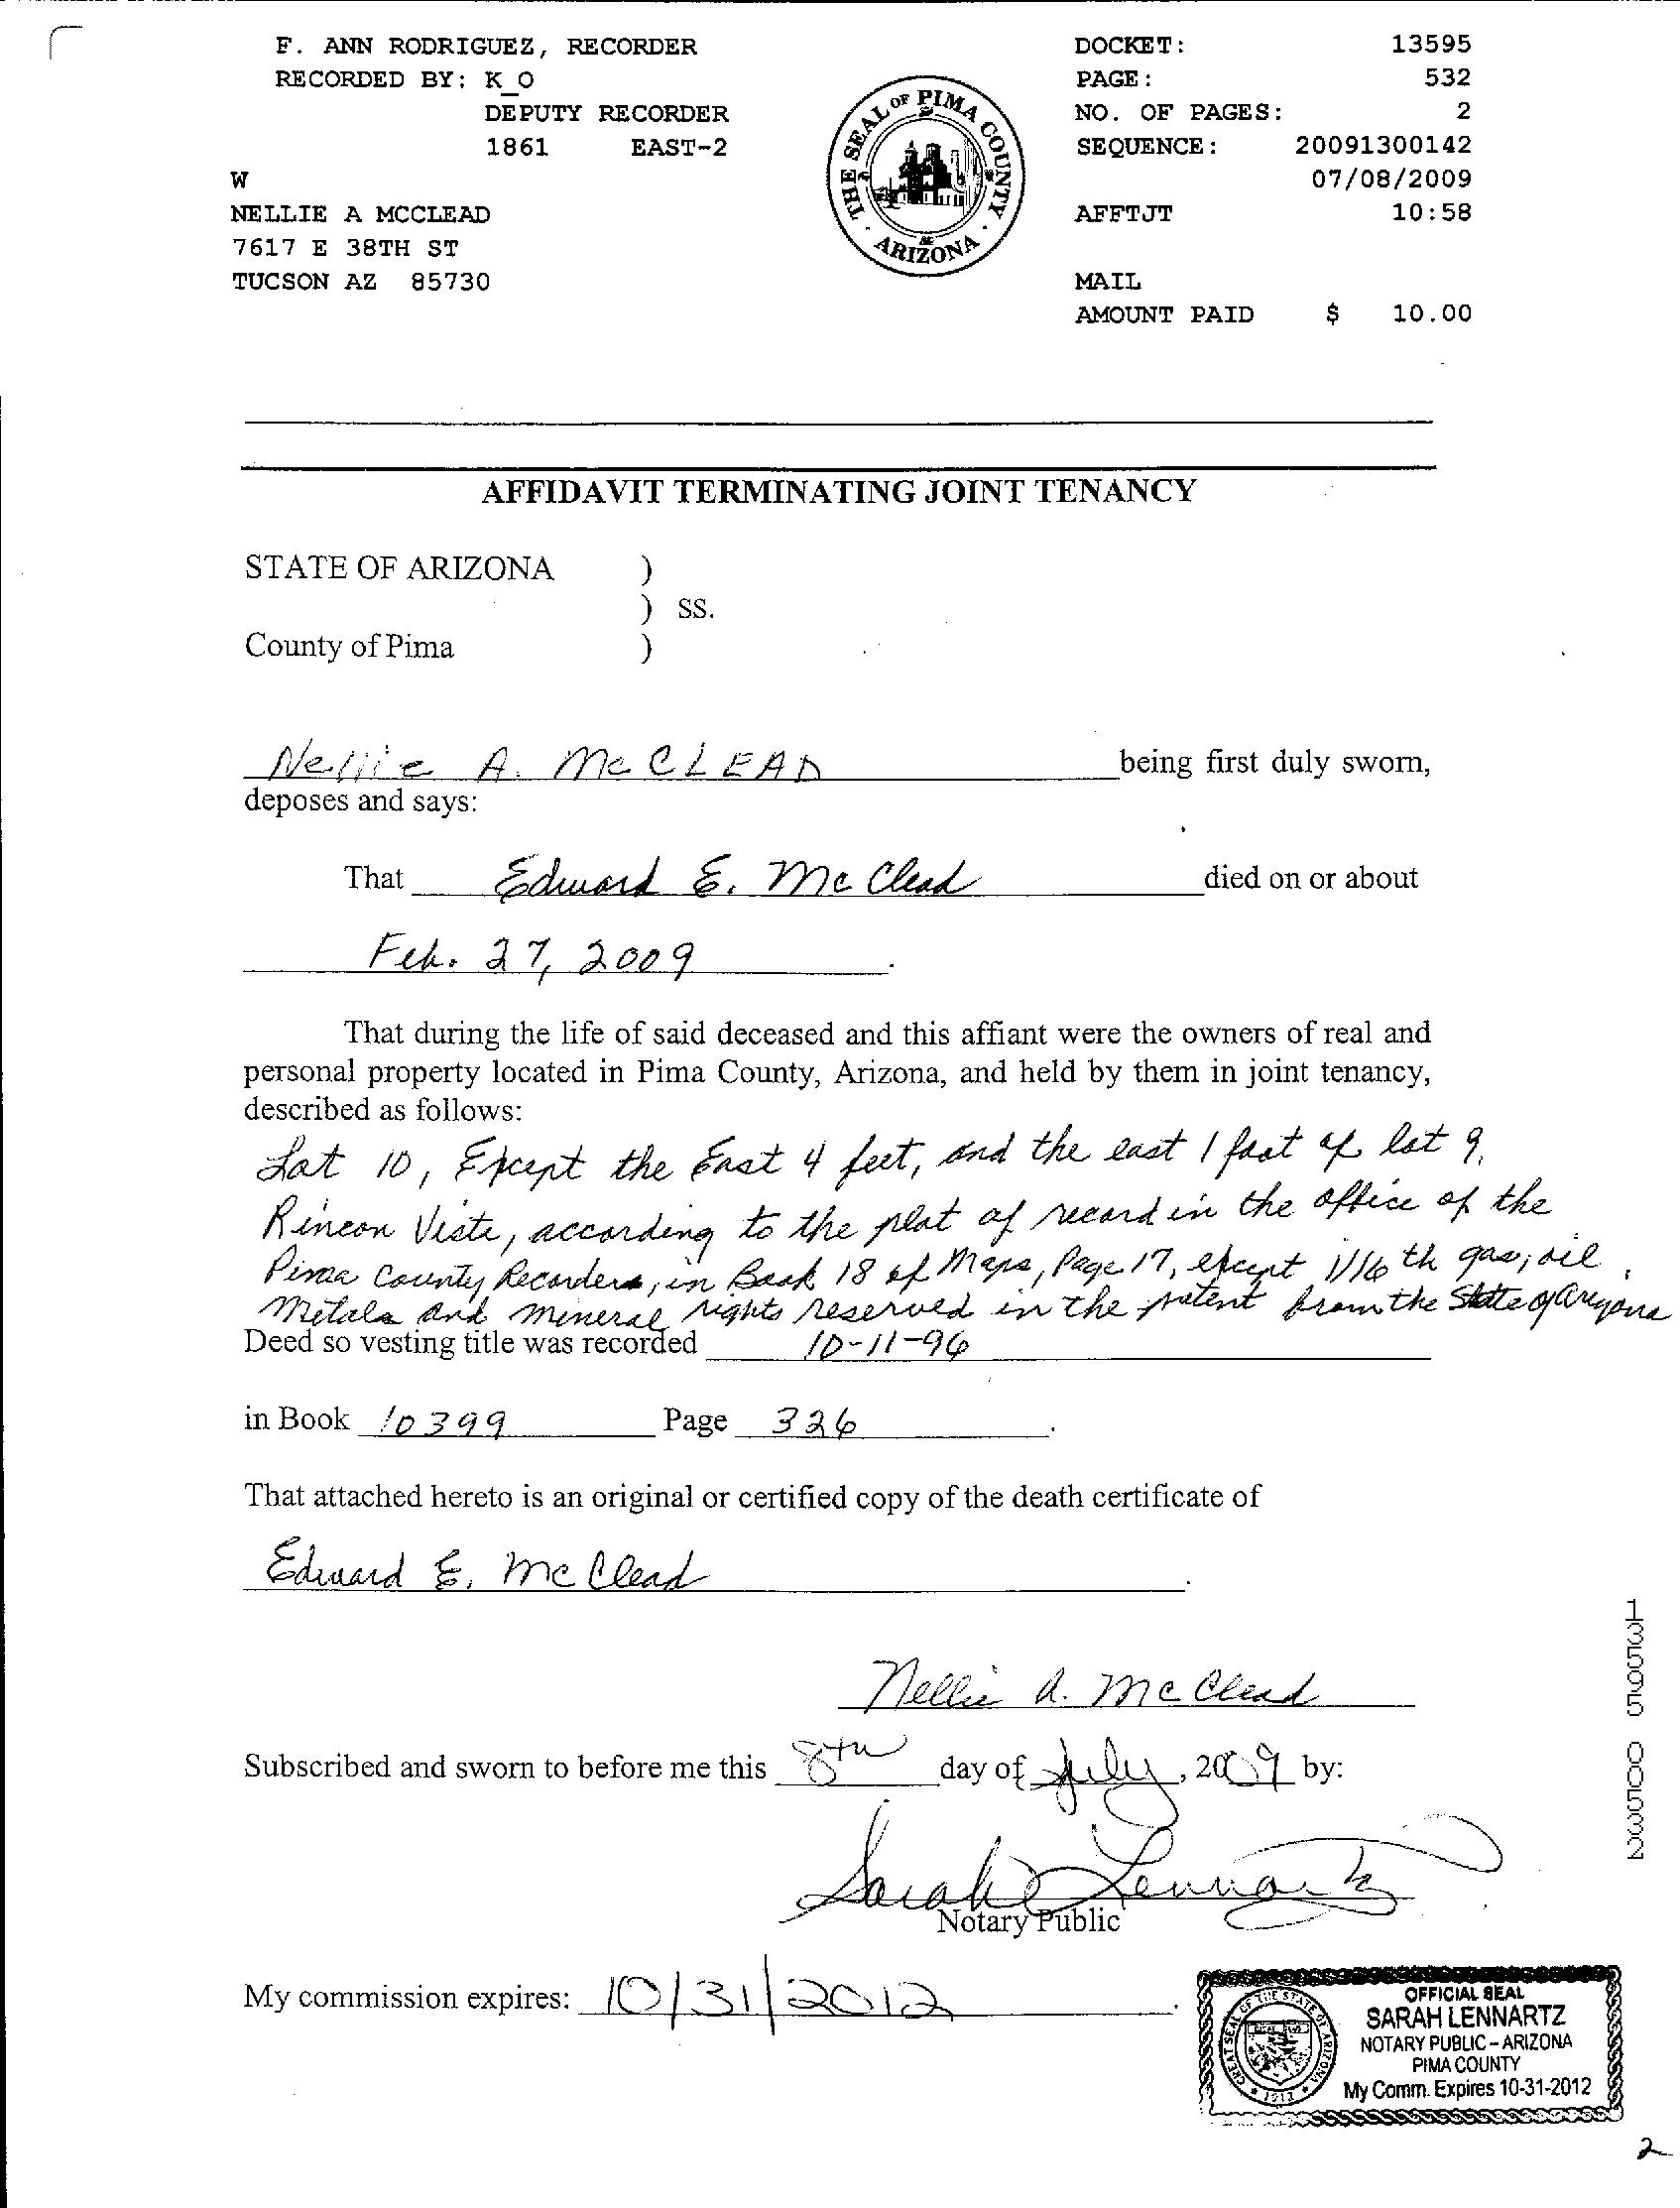 F. ANN RODRIGUEZ, RECORDER
RECORDED BY: K_O
DEPUTY RECORDER
1861 EAST-2
W
NELLIE A MCCLEAD
7617 E 38TH ST
TUCSON AZ 85730
THE SEAL OF PIMA COUNTY · ARIZONA ·
DOCKET: 13595
PAGE: 532
NO. OF PAGES: 2
SEQUENCE: 20091300142
07/08/2009
AFFTJT 10:58
MAIL
AMOUNT PAID $ 10.00
AFFIDAVIT TERMINATING JOINT TENANCY
STATE OF ARIZONA )
) SS.
County of Pima )
Nellie A. McCLEAD being first duly sworn,
deposes and says:
That Edward E. McClead died on or about
Feb. 27, 2009.
That during the life of said deceased and this affiant were the owners of real and
personal property located in Pima County, Arizona, and held by them in joint tenancy,
described as follows:
Lot 10, Except the East 4 feet, and the east 1 foot of lot 9,
Rincon Vista, according to the plat of record in the office of the
Pima County Recorders, in Book 18 of Maps, Page 17, except 1/16th gas, oil,
Metals and mineral rights reserved in the patent from the State of Arizona
Deed so vesting title was recorded 10-11-96
in Book 10399 Page 326.
That attached hereto is an original or certified copy of the death certificate of
Edward E. McClead.
Nellie A. McClead
Subscribed and sworn to before me this 8th day of July, 2009 by:
Sarah Lennartz
Notary Public
My commission expires: 10/31/2012.
GREAT SEAL OF THE STATE OF ARIZONA
1912
OFFICIAL SEAL
SARAH LENNARTZ
NOTARY PUBLIC - ARIZONA
PIMA COUNTY
My Comm. Expires 10-31-2012
13595 00532
2